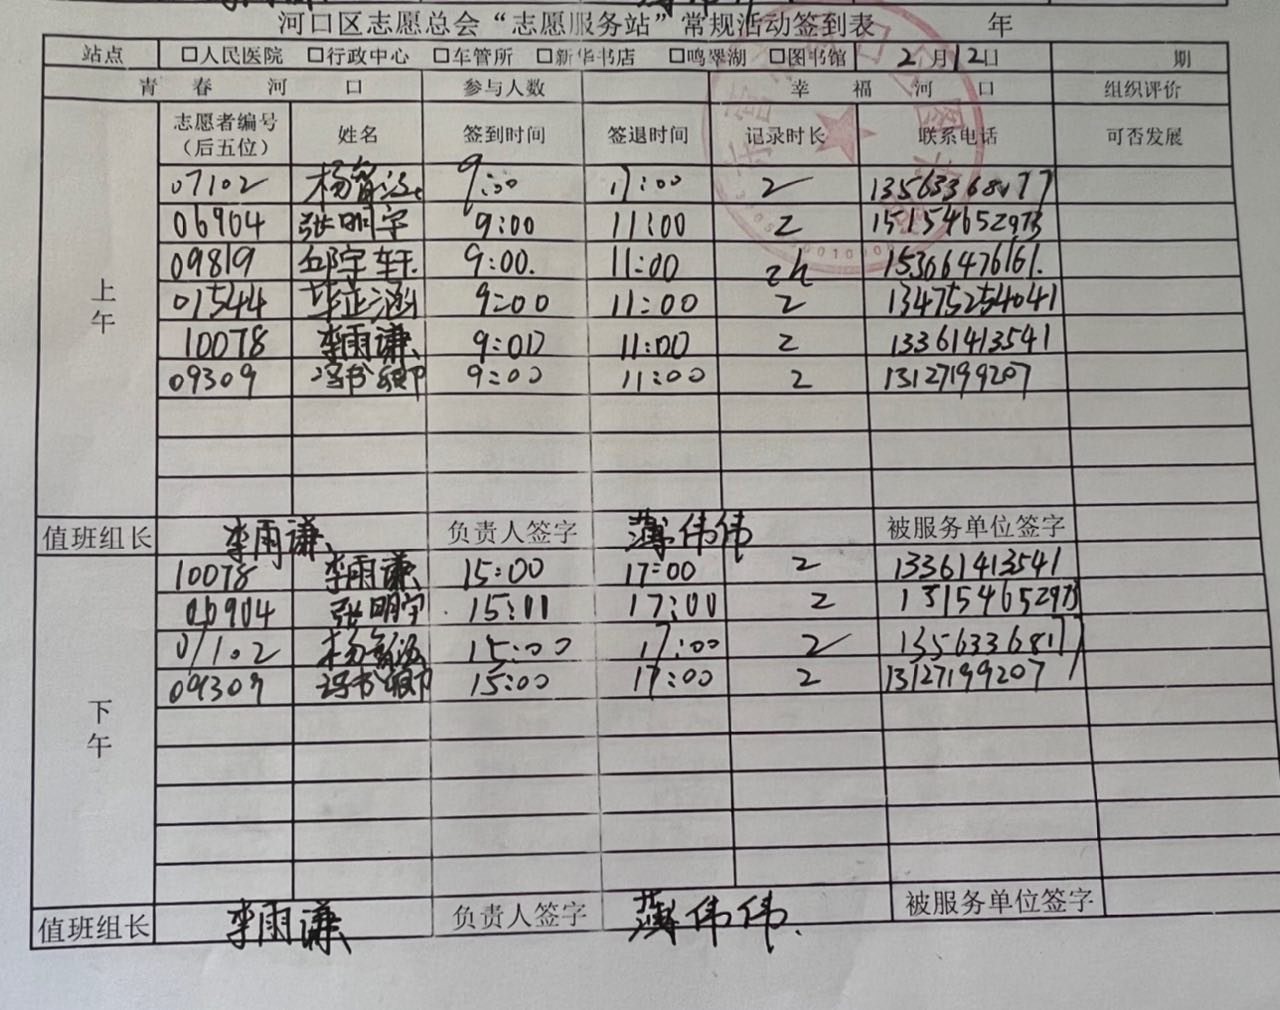 河口区志愿总会“志愿服务站”常规活动签到表 年
站点 □人民医院 □行政中心 □车管所 □新华书店 □鸣翠湖 □图书馆 2月12日 期
青春河口 参与人数 幸福河口 组织评价
志愿者编号（后五位） 姓名 签到时间 签退时间 记录时长 联系电话 可否发展
上午
07102 9:00 17:00 2
06904 张明宇 9:00 11:00 2 15154652973
09819 邱宇轩 9:00. 11:00 2h 15366476161.
01544 毕正涵 9:00 11:00 2 13475254041
10078 李雨谦 9:00 11:00 2 13361413541
09309 冯书卿 9:00 11:00 2 13127199207
值班组长 李雨谦 负责人签字 薄伟伟 被服务单位签字
下午
10078 李雨谦 15:00 17:00 2 13361413541
06904 张明宇 15:01 17:00 2
07102 15:00 17:00 2
09309 冯书卿 15:00 17:00 2 13127199207
值班组长 李雨谦 负责人签字 薄伟伟. 被服务单位签字